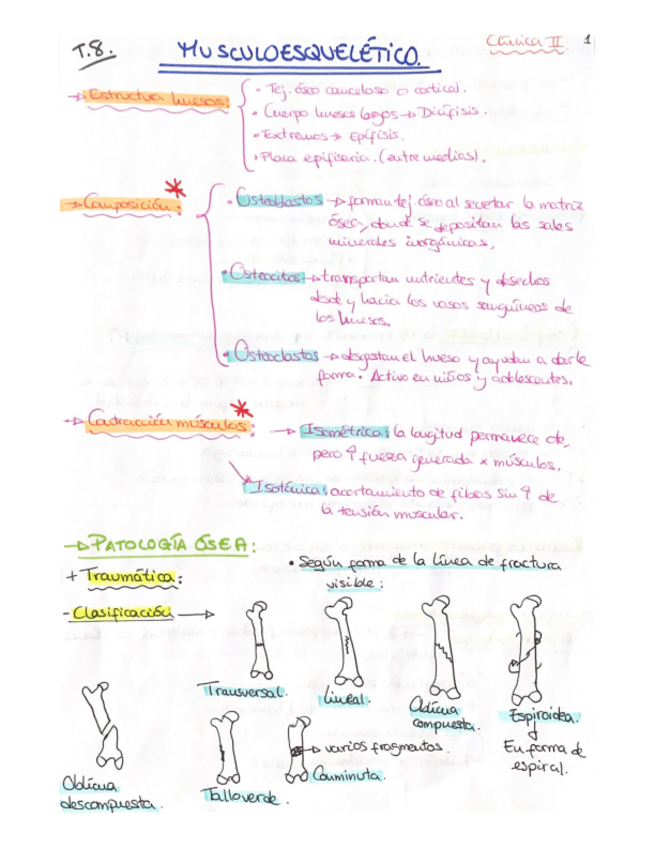 T.8. MUSCULOESQUELÉTICO. Clínica II 1
→ Estructura huesos:
• Tej. óseo canceloso o cortical.
• Cuerpo huesos largos → Diáfisis.
• Extremos → Epífisis.
• Placa epifisaria. (entre medias).
→ Composición: *
• Osteoblastos → forman tej. óseo al secretar la matriz
ósea, donde se depositan las sales
minerales inorgánicas.
• Osteocitos → transportan nutrientes y desechos
desde y hacia los vasos sanguíneos de
los huesos.
• Osteoclastos → desgastan el hueso y ayudan a darle
forma. Activo en niños y adolescentes.
→ Contracción músculos: *
→ Isométrica: la longitud permanece cte,
pero ↑ fuerza generada x músculos.
Isotónica: acortamiento de fibras sin ↑ de
la tensión muscular.
→ PATOLOGÍA ÓSEA:
+ Traumática:
• Según forma de la línea de fractura
visible:
- Clasificación →
Transversal.
Lineal.
Oblicua
compuesta.
Espiroidea.
↓
En forma de
espiral.
Oblicua
descompuesta.
Tallo verde.
→ varios fragmentos.
Conminuta.